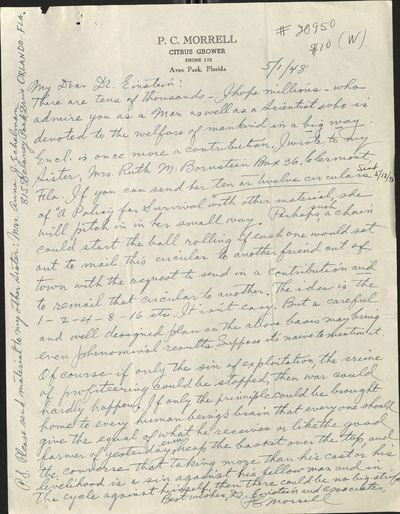 # 20950
$10 (W)
P. C. MORRELL
CITRUS GROWER
PHONE 173
Avon Park, Florida
5/1/48
My Dear Dr. Einstein:
There are tens of thousands - I hope millions - who
admire you as a Man as well as a Scientist who is
devoted to the welfare of mankind in a big way.
Encl. is once more a contribution. I wrote to my
Sister, Mrs. Ruth M. Bornstein Box 36, Clermont,
Fla. If you can send her ten or twelve circulars Sent 5/12/48
of "A Policy for Survival" with other material, she
will pitch in in her small way. Perhaps, such a chain
could start the ball rolling if each one would set
out to mail this circular to another friend out of
town with the request to send in a contribution and
to remail that circular to another. The idea is the
1-2-4-8-16 etc. It isn't easy. But a careful
and well designed plan on the above basis may bring
even phenominal results. Suppose its naive to mention it.
Of course if only the sin of exploitation, the crime
of profiteering could be stopped, then war could
hardly happen. If only the principle could be brought
home to every human being's brain that everyone should
give the equal of what he receives or like the good
farmer of yesterday, even heap the basket over the top, and
the converse that taking more than his cost or his
livelihood is a sin against his fellow man and in
the cycle against himself, then there could be no big strife
Best wishes, Dr. Einstein and associates,
P C Morrell
P.S. Please send material to my other sister: Mrs. Anna J.
815 Delaney Park Drive ORLANDO - FLA.